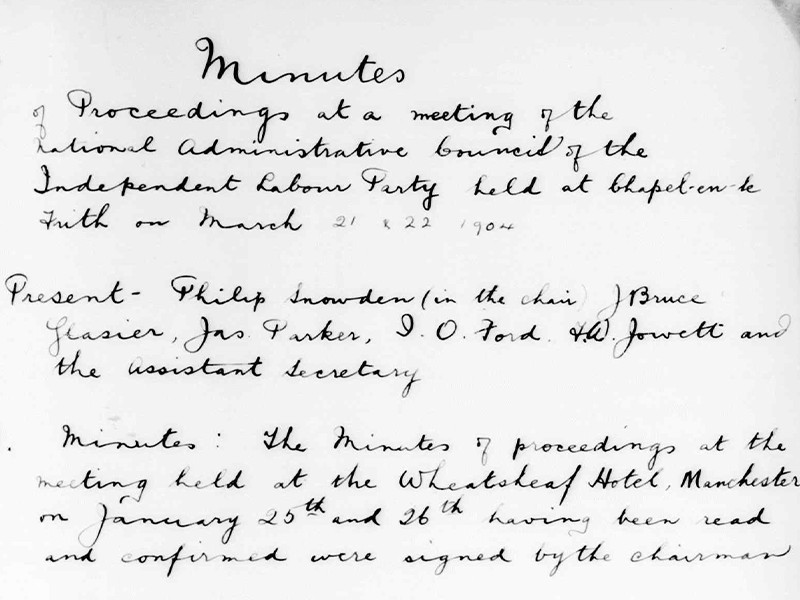 Minutes
of Proceedings at a meeting of the
National Administrative Council of the
Independent Labour Party held at Chapel-en-le
Frith on March 21 & 22 1904
Present - Philip Snowden (in the chair) J Bruce
Glasier, Jas Parker, I. O. Ford. F.W. Jowett and
the Assistant Secretary
Minutes: The Minutes of proceedings at the
meeting held at the Wheatsheaf Hotel, Manchester
on January 25th and 26th having been read
and confirmed were signed by the chairman